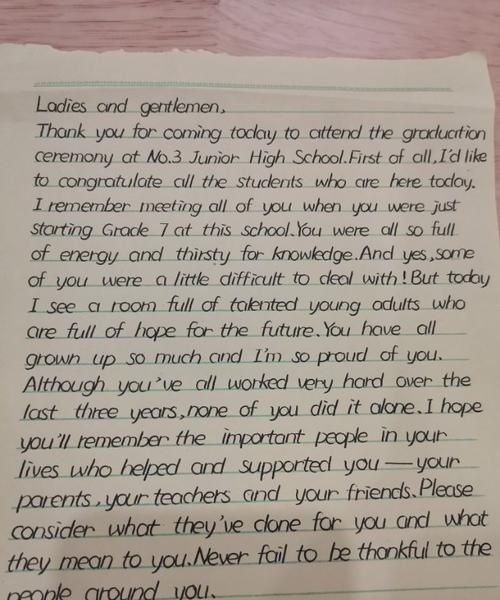 Ladies and gentlemen,
Thank you for coming today to attend the graduation
ceremony at No.3 Junior High School.First of all,I'd like
to congratulate all the students who are here today.
I remember meeting all of you when you were just
starting Grade 7 at this school.You were all so full
of energy and thirsty for knowledge.And yes,some
of you were a little difficult to deal with!But today
I see a room full of talented young adults who
are full of hope for the future.You have all
grown up so much and I'm so proud of you.
Although you've all worked very hard over the
last three years,none of you did it alone.I hope
you'll remember the important people in your
lives who helped and supported you—your
parents,your teachers and your friends.Please
consider what they've done for you and what
they mean to you.Never fail to be thankful to the
people around you.